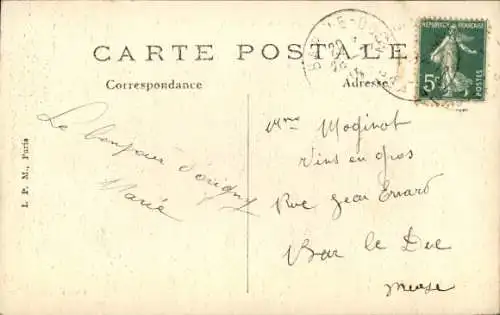 CARTE POSTALE
Correspondance
Adresse
RÉPUBLIQUE FRANÇAISE
5c
POSTES
BAR-LE-DUC
L. P. M., Paris
Le bonjour d'origny
Marie
Mme Moginot
Vins en gros
Rue Jean Errard
Bar le Duc
Meuse